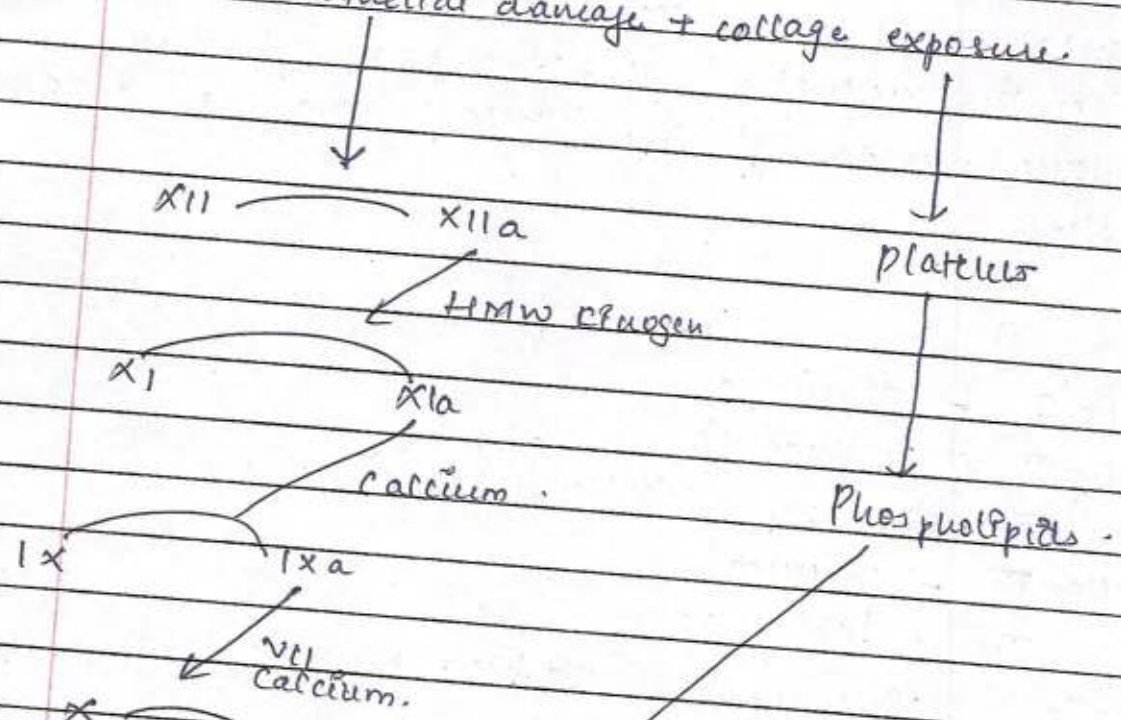 damage + collage exposure.
XII XIIa
Platelets
HMW Kinogen
XI XIa
Calcium.
Phospholipids.
IX IXa
VII
Calcium.
X